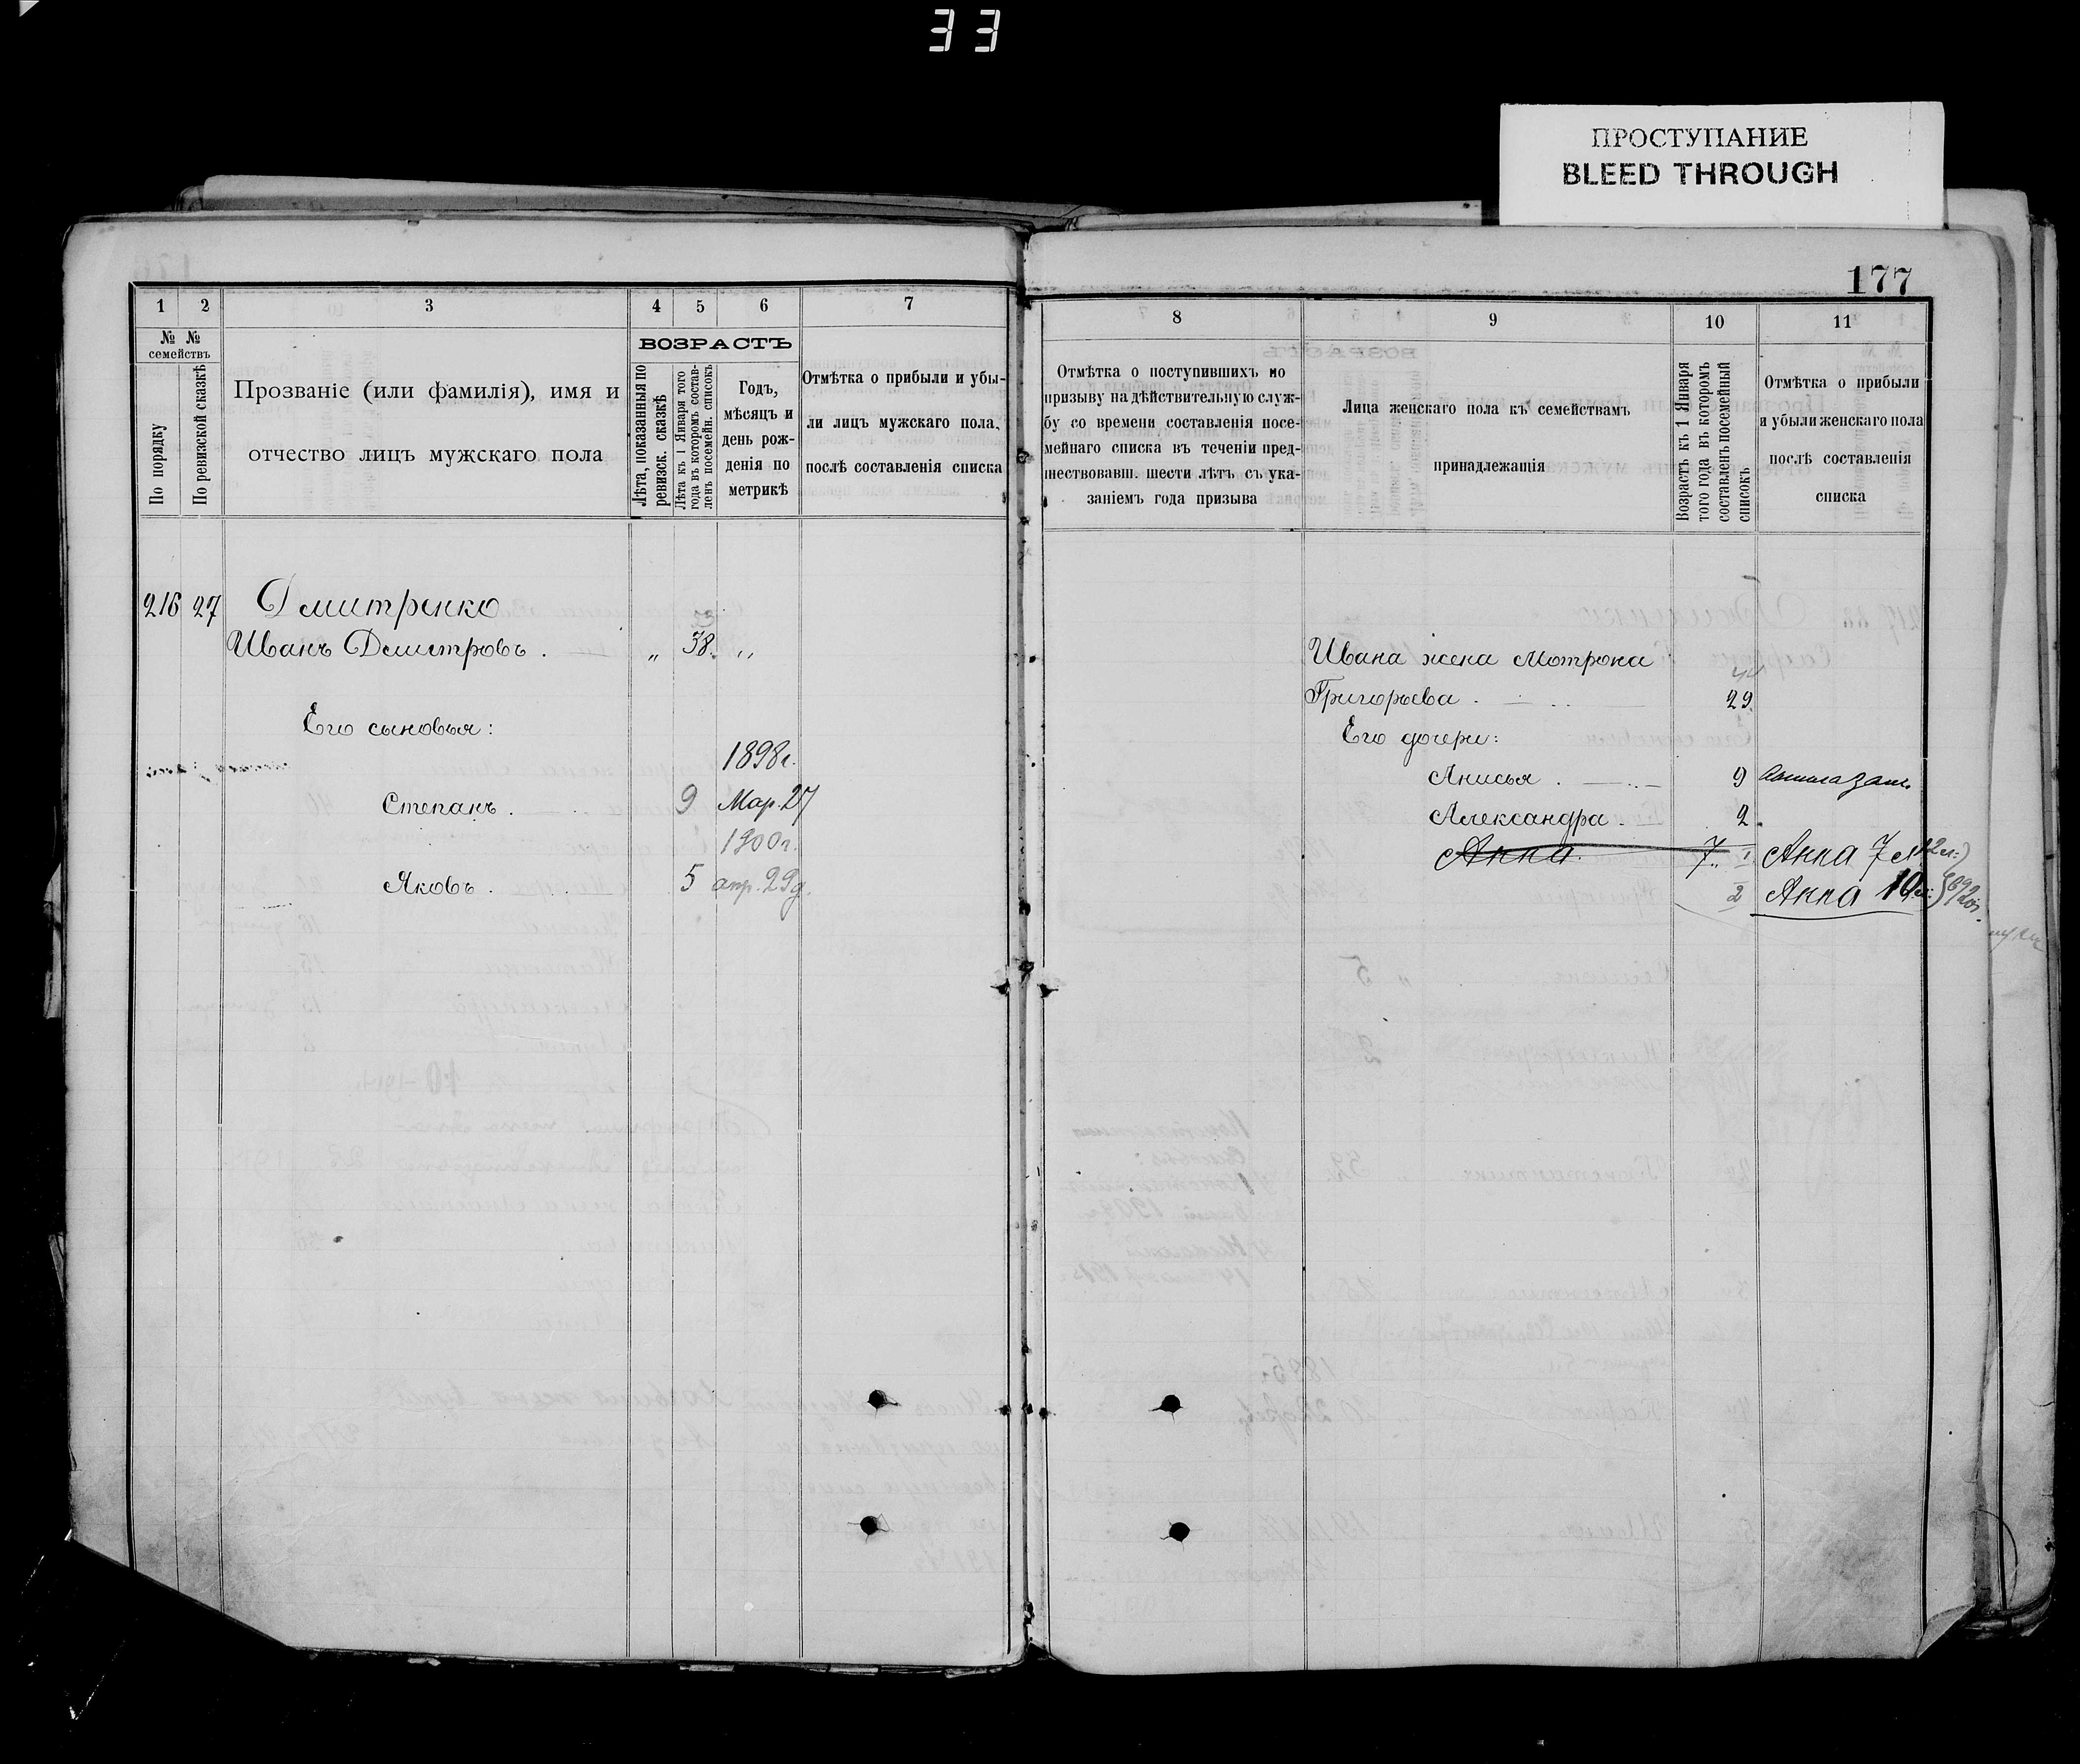 33
ПРОСТУПАНИЕ
BLEED THROUGH
177
1 2 3 4 5 6 7
№ № семействъ
По порядку
По ревизской сказкѣ
Прозваніе (или фамилія), имя и
отчество лицъ мужскаго пола
ВОЗРАСТЪ
Лѣта, показанныя по
ревизск. сказкѣ
Лѣта къ 1 Января того
года въ которомъ состав-
ленъ посемейн. списокъ
Годъ,
мѣсяцъ и
день рож-
денія по
метрикѣ
Отмѣтка о прибыли и убы-
ли лицъ мужскаго пола,
послѣ составленія списка
216 27 Дмитренко
Иванъ Дмитровъ . „ 38. „
Его сыновья:
1898г.
Степанъ . 9 Мар. 27
1900г.
Яковъ . 5 апр. 29д.
8 9 10 11
Отмѣтка о поступившихъ по
призыву на дѣйствительную служ-
бу со времени составленія посе-
мейнаго списка въ теченіи пред-
шествовавш. шести лѣтъ съ ука-
заніемъ года призыва
Лица женскаго пола къ семействамъ
принадлежащія
Возрастъ къ 1 Января
того года въ которомъ
составленъ посемейный
списокъ
Отмѣтка о прибыли
и убыли женскаго пола
послѣ составленія
списка
Ивана жена Мотрона
Григорьева . 29.
Его дочери:
Анисья . 9
Александра . 2.
Анна. 7. 1 Анна 7
2 Анна 10